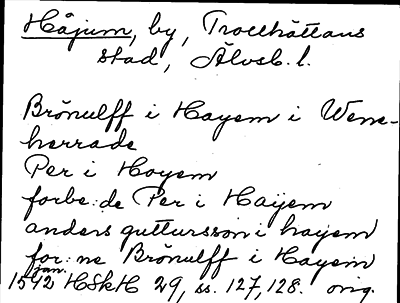 Håjum, by, Trollhättans
stad, Älvsb. l.
Brönulff i Hayem i Wene-
herrade
Per i Hoyem
forbe:de Per i Haÿem
anders guttursson i hayem
for:ne Brönulff i Hayem
1542 jan. HSkH 29, ss. 127, 128. orig.